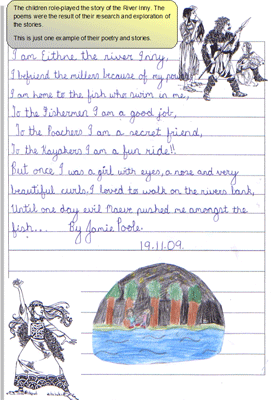 The children role-played the story of the River Inny. The
poems were the result of their research and exploration of
the stories.
This is just one example of their poetry and stories.
I am Eithne the river Inny,
I befriend the millers because of my power
I am home to the fish who swim in me,
To the Fishermen I am a good job,
To the Poachers I am a secret friend,
To the Kayakers I am a fun ride!!
But once I was a girl with eyes, a nose and very
beautiful curls. I loved to walk on the rivers bank,
Until one day evil Maeve pushed me amongst the
fish... By Jamie Poole.
19.11.09.